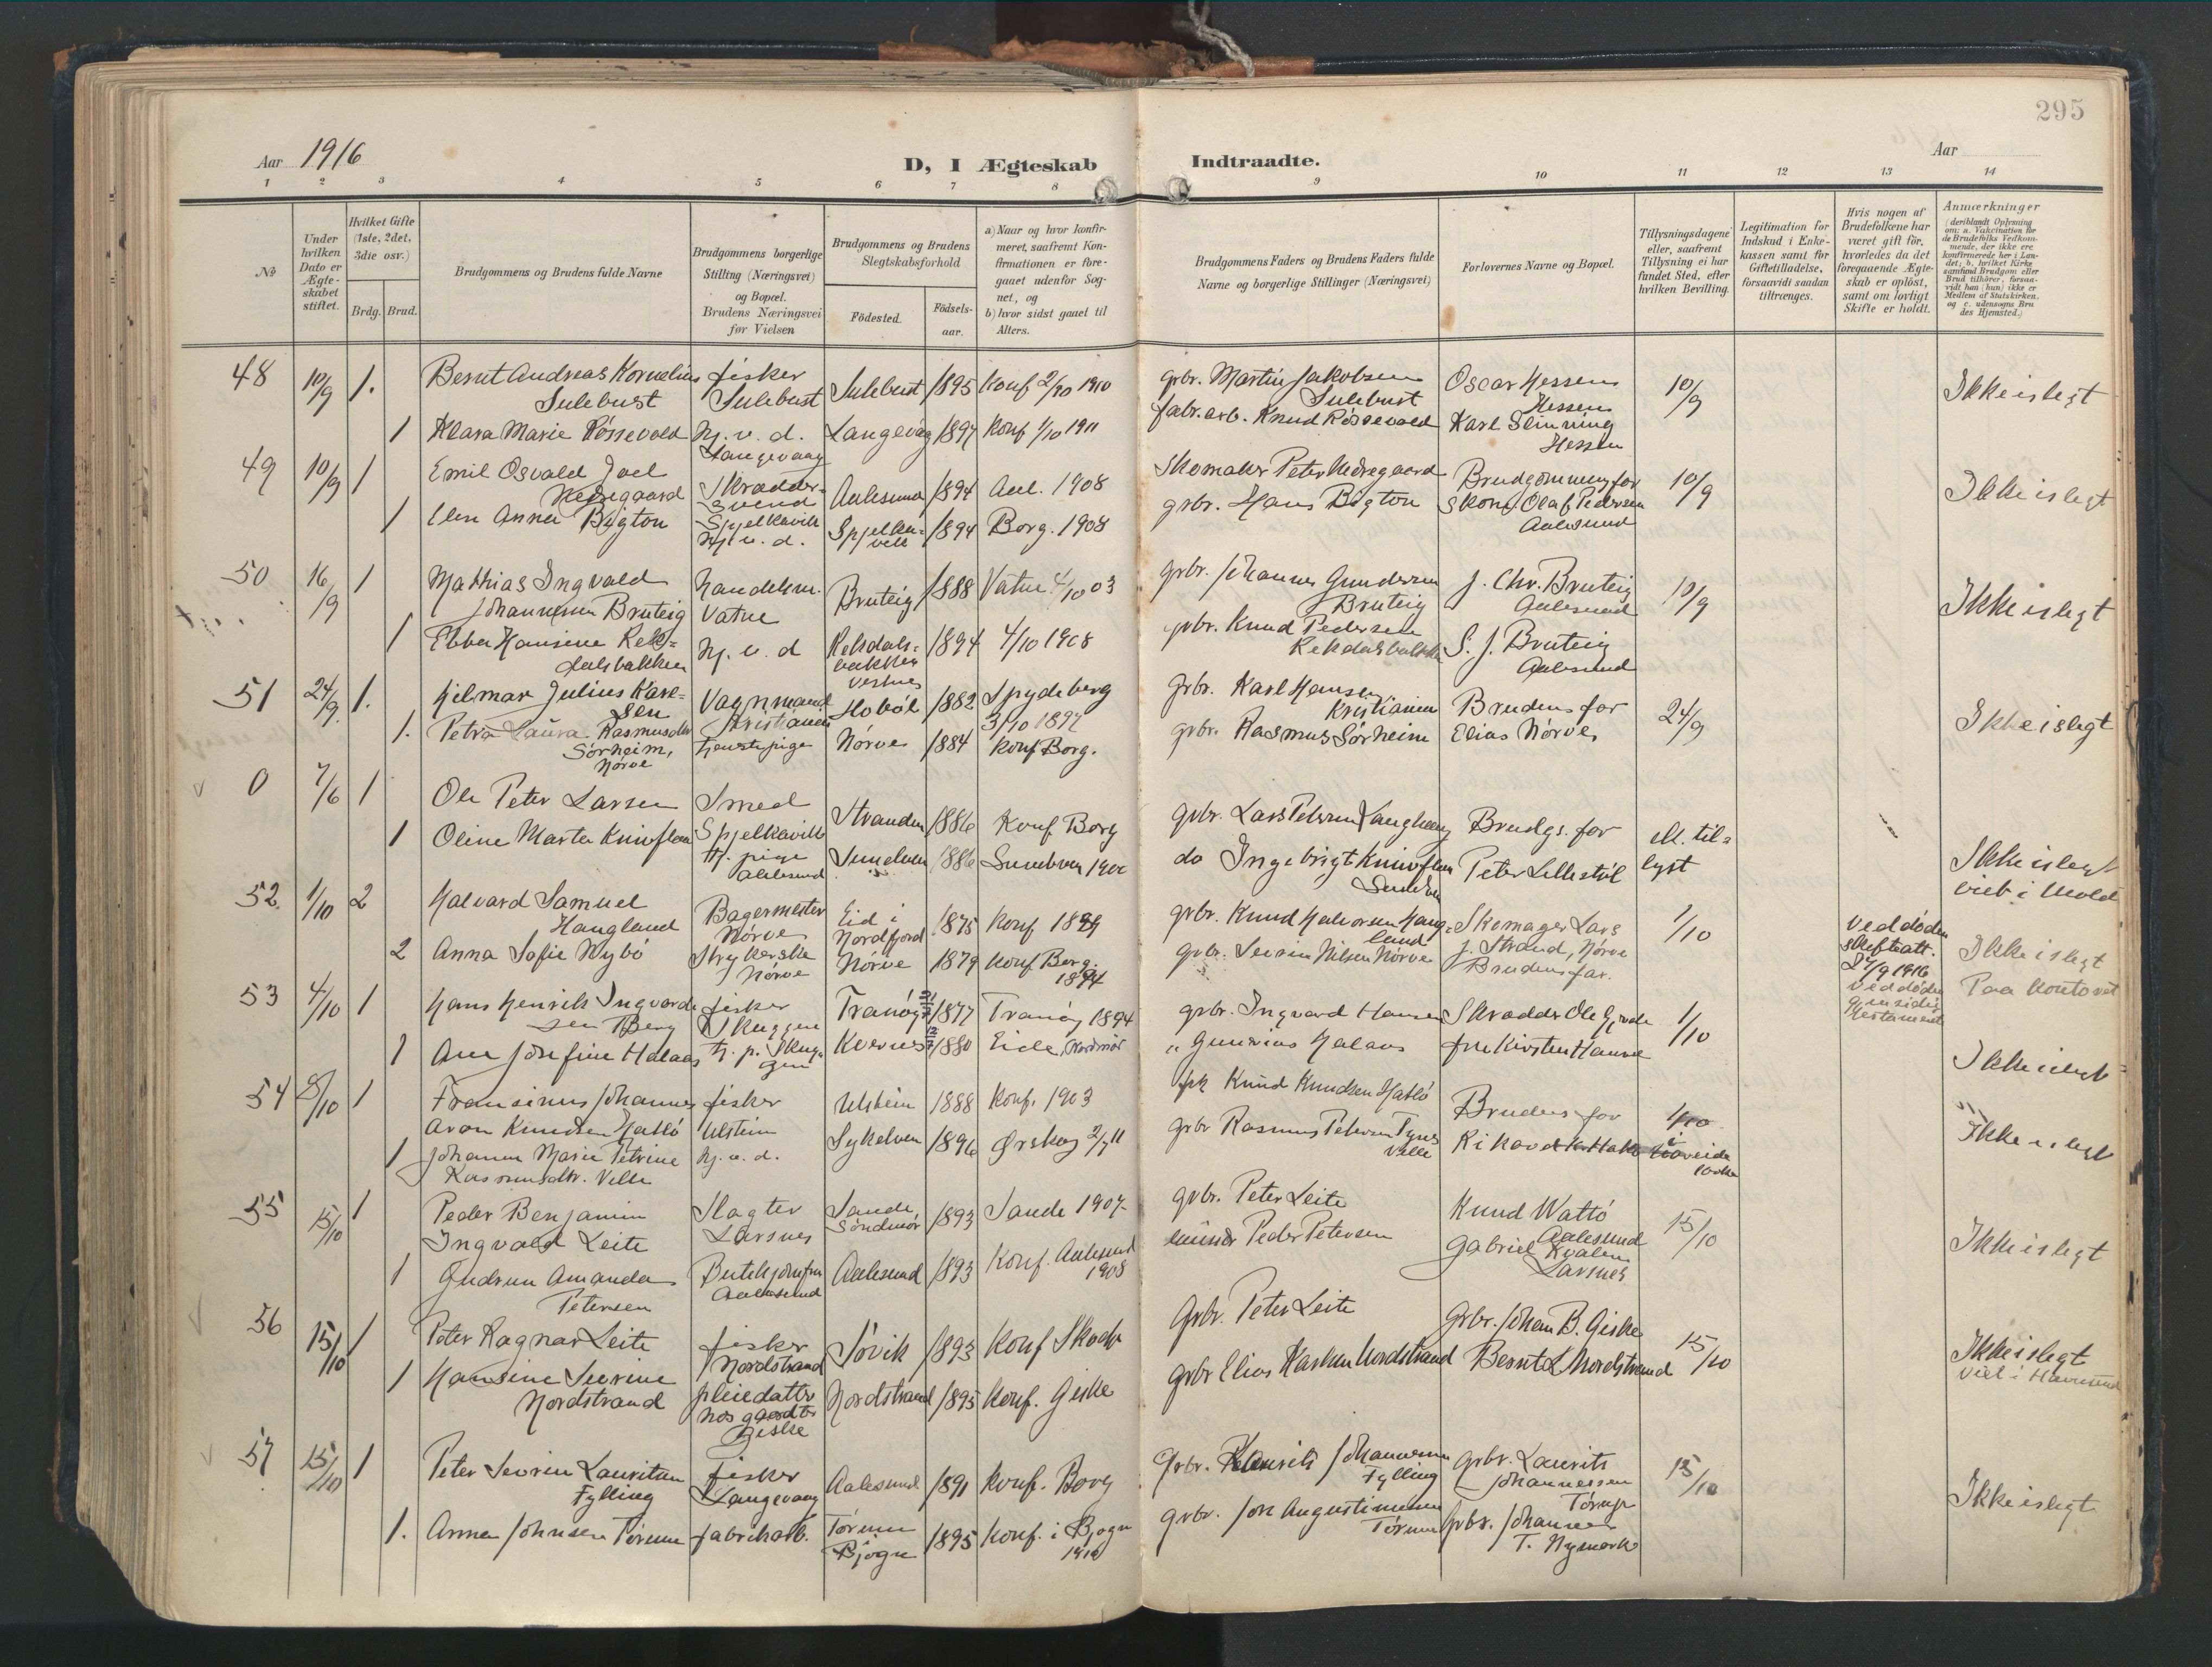 295
Aar 1916
D, I Ægteskab Indtraadte.
Aar
1 2 3 4 5 6 7 8 9 10 11 12 13 14
No
Under hvilken Dato er Ægteskabet stiftet.
Hvilket Gifte (1ste, 2det, 3die osv.)
Brdg. Brud.
Brudgommens og Brudens fulde Navne
Brudgommens borgerlige Stilling (Næringsvei) og Bopæl. Brudens Næringsvei før Vielsen
Brudgommens og Brudens Slegtskabsforhold
Födested. Födsels-aar.
a) Naar og hvor konfirmeret, saafremt Konfirmationen er foregaaet udenfor Sognet, og b) hvor sidst gaaet til Alters.
Brudgommens Faders og Brudens Faders fulde Navne og borgerlige Stillinger (Næringsvei)
Forlovernes Navne og Bopæl.
Tillysningsdagene eller, saafremt Tillysning ei har fundet Sted, efter hvilken Bevilling.
Legitimation for Indskud i Enkekassen samt for Giftetilladelse, forsaavidt saadan tiltrænges.
Hvis nogen af Brudefolkene har været gift før, hvorledes da det foregaaende Ægteskab er oplöst, samt om lovligt Skifte er holdt.
Anmærkninger (deriblandt Oplysning om: a. Vakcination for de Brudefolks Vedkommende, der ikke ere konfirmerede her i Landet; b. hvilket Kirkesamfund Brudgom eller Brud tilhører, forsaavidt han (hun) ikke er Medlem af Statskirken. og c. udensogns Brudes Hjemsted.)
48 10/9 1. Bernt Andreas Kornelius fisker Sulebust 1895 Konf 2/10 1910 grbr. Martin Jakobsen Oscar Hessen 10/9 Ikke i slegt
Sulebust Sulebust Sulebust Hessen
1 Klara Marie Røssevold hj. v. d. Langevåg 1897 Konf 1/10 1911 fabr.arb. Knud Røssevold Karl Slinning
Langevaag Hessen
49 10/9 1 Emil Osvald Joel Skrædder- Aalesund 1894 Aal. 1908 Skomaker Peter Nedregaard Brudgommens far 10/9 Ikke i slegt
Nedregaard svend
1 Elen Anna Bigton Spjelkavik Spjelkavik 1894 Borg. 1908 grbr. Hans Bigton Skom. Olaf Pedersen
hj. v. d. Aalesund
50 16/9 1 Mathias Ingvald handelsm. Bruteig 1888 Vatne 4/10 03 grbr. Johannes Gundersen J. Chr. Bruteig 10/9 Ikke i slegt
Johannesen Bruteig Vatne Bruteig Aalesund
1 Ebba Hansine Rek= hj. v. d Rekdals= 1894 4/10 1908 grbr. Knud Pedersen S. J. Bruteig
dalsbakken bakken Vestnes Rekdalsbakken Aalesund
51 24/9 1. Hjelmar Julius Karl= Vognmand Hobøl 1882 Spydeberg Grbr. Karl Hansen Brudens far 24/9 Ikke i slegt
sen Kristiania 3/10 1897 Kristiania
1. Petra Laura Rasmusdtr tjenestepige Nørve 1884 Konf Borg. grbr. Rasmus Sørheim Elias Nørve
Sørheim, Nørve
0 7/6 1 Ole Peter Larsen Smed Stranden 1886 Konf Borg grbr. Lars Petersen Brudgs. far ell. til= Ikke i slegt
1 Oline Marta Knivsflaa Spjelkavik Sunelven 1886 Sunelven do Ingebrigt Knivsflaa Peter Lillestøl lyst viet i Molde
tj. pige Aalesund
52. 1/10 2 Halvard Samuel Bagermester Eid i 1875 Konf grbr. Knud Halvorsen Haug= Skomager Lars 1/10 Ved døden
Haugland Nørve Nordfjord land J. Strand, Nørve skifteatt.
2 Anna Sofie Nybø Strykerske Nørve 1879 Konf Borg. grbr. Severin Nilsen Nørve Brudens far. 27/9 1916 Ikke i slegt
Nørve 1894 ved døden Paa kontoret
gjensidig testament
53 4/10 1 Hans Henrik Ingvard= fisker Tranøy 1877 Tranøy 1894 grbr. Ingvard Hansen Skrædder Ole Gjerde 1/10
sen Berg Skuggen
1 Ane Josefine Halaas tj. p. Kvernes 1880 Eide, Nordmør " Gunerius Halaas fru Kirsten Hansen Ikke i slegt
54 8/10 1 Fransinus Johannes fisker Ulstein 1888 Konf. 1903 Knud Knudsen Hatlø Brudens far Ikke i slegt
Aron Knudsen Hatlø Ulstein
1 Johanne Marie Petrine hj. v. d. Sykelven 1896 Ørskog 2/7 11 grbr Rasmus Petersen
Rasmusdtr. Velle Velle
55 15/10 1 Peder Benjamin Slagter Sande, 1893 Sande 1907 grbr. Peter Leite Knud Wattø 15/10 Ikke i slegt
Ingvald Leite Larsnes Søndmør Aalesund
1 Gudrun Amanda Butikjomfru Aalesund 1893 Konf. Aalesund Peder Petersen Gabriel Kvalen
Petersen Aalesund 1908 Larsnes
56 15/10 1 Peter Ragnar Leite fisker Søvik 1893 Konf Skodje Grbr. Peter Leite Grbr. Johan B. Giske 15/10 Ikke i slegt
Nordstrand
1 Hansine Severine pleiedatter Nordstrand 1895 Konf. Giske grbr Elias Karlsen Nordstrand Bernt L Nordstrand
Nordstrand Giske
57 15/10 1 Peter Severin Lauritsen fisker Aalesund 1891 Konf. Borg Grbr. Laurits Johannesen grbr. Laurits 15/10 Ikke i slegt
Fylling Langevaag Fylling Johannesen
1. Anna Johnsen Tørum fabrikarb. Tørum 1895 Konf. i Bjogn grbr. Jon Augustinusen grbr. Johannes
Bjogn 1910 Tørum T. Nymark